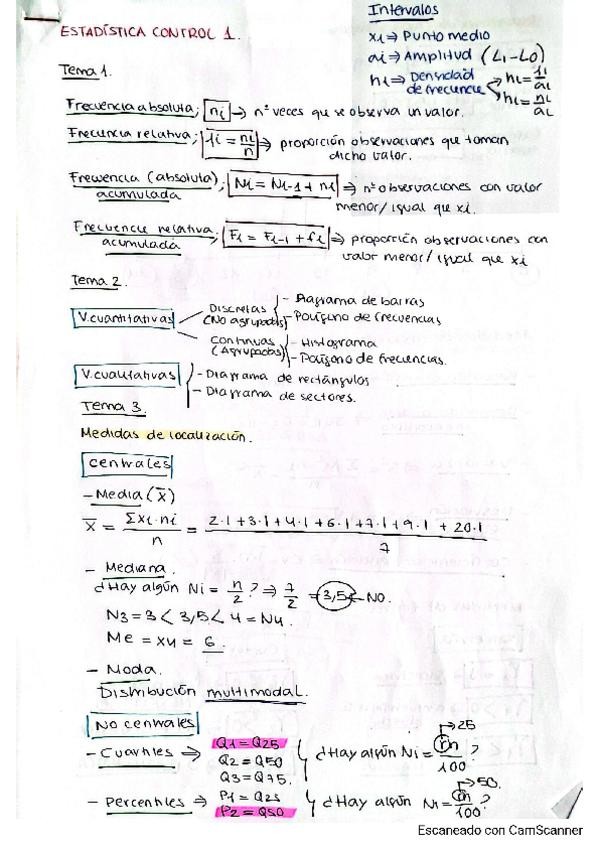 Intervalos
xi ⇒ Punto medio
ai ⇒ Amplitud (Li-L0)
hi ⇒ Densidad de frecuencia
hi = fi/ai
hi = ni/ai
ESTADÍSTICA CONTROL 1.
Tema 1.
Frecuencia absoluta; ni → nº veces que se observa un valor.
Frecuencia relativa; fi = ni/n ⇒ proporción observaciones que toman
dicho valor.
Frecuencia (absoluta); Ni = Ni-1 + ni ⇒ nº observaciones con valor
acumulada menor/igual que xi.
Frecuencia relativa; Fi = Fi-1 + fi ⇒ proporción observaciones con
acumulada valor menor/igual que xi
Tema 2.
V.cuantitativas
DISCRETAS (No agrupadas)
- Diagrama de barras
- Polígono de frecuencias
CONTINUAS (Agrupadas)
- Histograma
- Polígono de frecuencias.
V.cualitativas
- Diagrama de rectángulos
- Diagrama de sectores.
Tema 3.
Medidas de localización.
centrales
- Media (x̄)
x̄ = Σxi·ni / n = 2·1+3·1+4·1+6·1+7·1+9·1+20·1 / 7
- Mediana.
¿Hay algún Ni = n/2? ⇒ 7/2 = 3,5 ← NO.
N3 = 3 < 3,5 < 4 = N4.
Me = x4 = 6.
- Moda.
Distribución multimodal.
No centrales
- Cuartiles ⇒ Q1 = Q25
Q2 = Q50
Q3 = Q75.
¿Hay algún Ni = rn/100? → 25
- Percentiles ⇒ P1 = Q25
P2 = Q50
¿Hay algún Ni = rn/100? → 50.
Escaneado con CamScanner